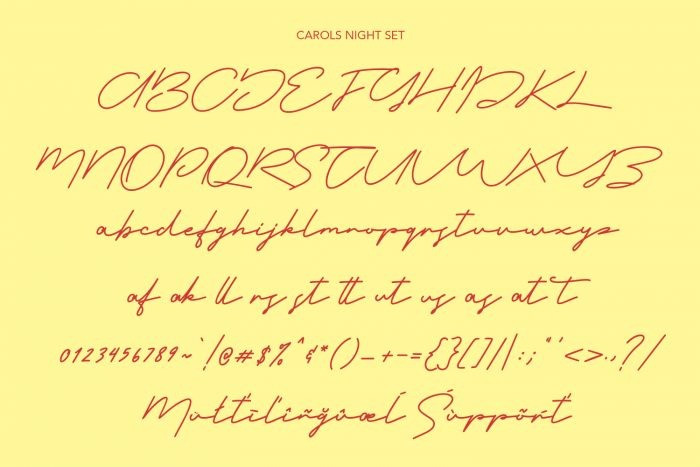 CAROLS NIGHT SET
ABCDEFGHIJKL
MNOPQRSTUVWXYZ
abcdefghijklmnopqrstuvwxyz
af ak ll rs st tt ut us as at t
0123456789~`!@#$%^&*()_+-={}[]/|:;"'<>.,?/
Mùłťīĺîñğûæĺ Śùppõŕť